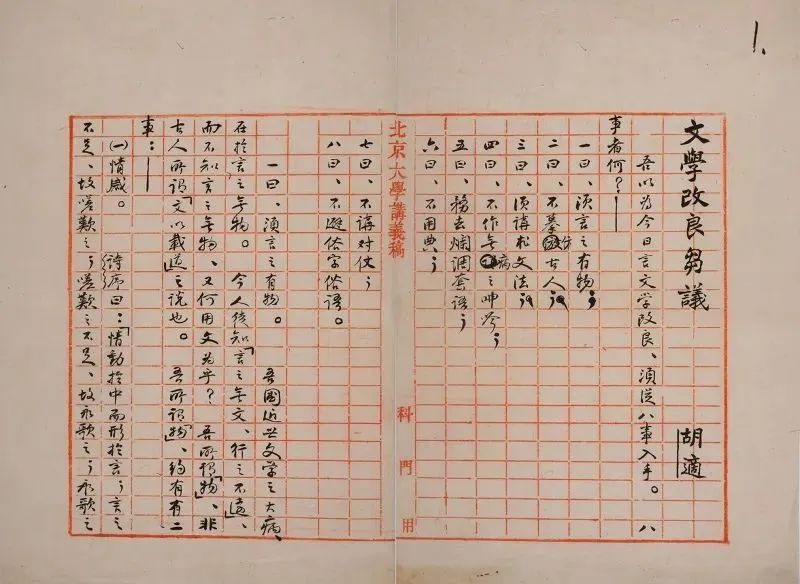 1.
文學改良芻議
胡適
吾以為今日言文學改良、須從八事入手。八
事者何？——
一曰、須言之有物；
二曰、不摹仿古人；
三曰、須講求文法；
四曰、不作無病之呻吟；
五曰、務去爛調套語；
六曰、不用典；
北京大學講義稿
科
門
用
七曰、不講对仗；
八曰、不避俗字俗語。
一曰、須言之有物。吾國近世文學之大病、
在於言之無物。今人徒知「言之無文、行之不遠」、
而不知言之無物、又何用文為乎？吾所謂「物」、非
古人所謂「文以載道」之說也。吾所謂「物」、約有二
事：——
(一)情感。詩序曰：「情動於中而形於言；言之
不足、故嗟歎之；嗟歎之不足、故永歌之；永歌之